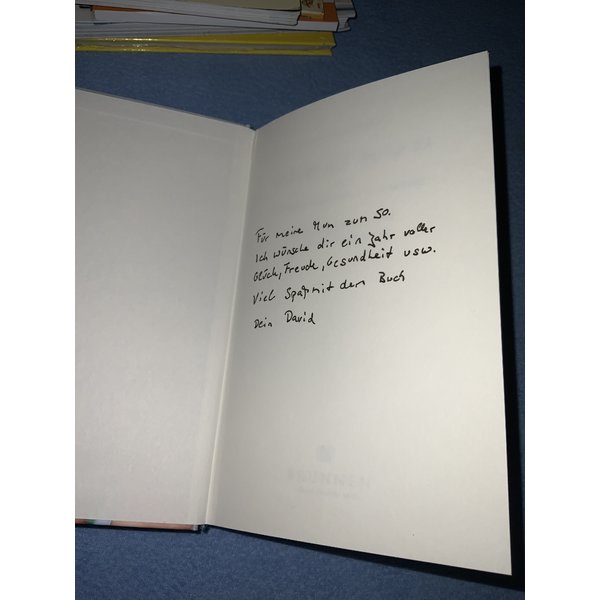 Für meine Mum zum 50.
Ich wünsche dir ein Jahr voller
Glück, Freude, Gesundheit usw.
Viel Spaß mit dem Buch
Dein David